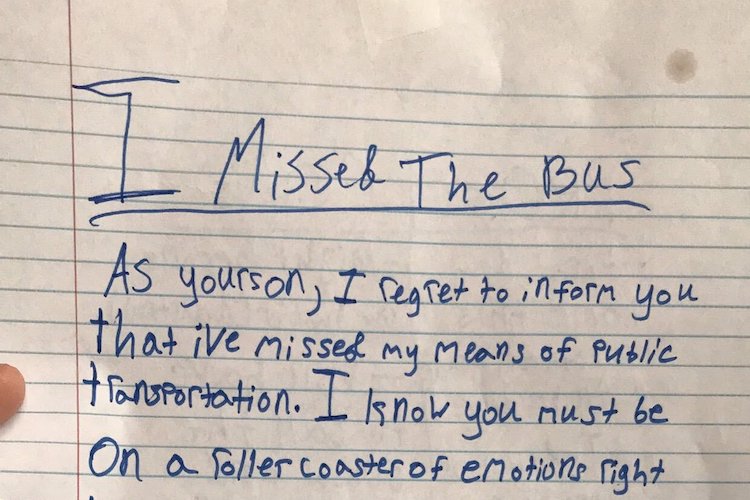 I Missed The Bus
As yourson, I regret to inform you
that ive missed my means of public
transportation. I know you must be
On a roller coaster of emotions right